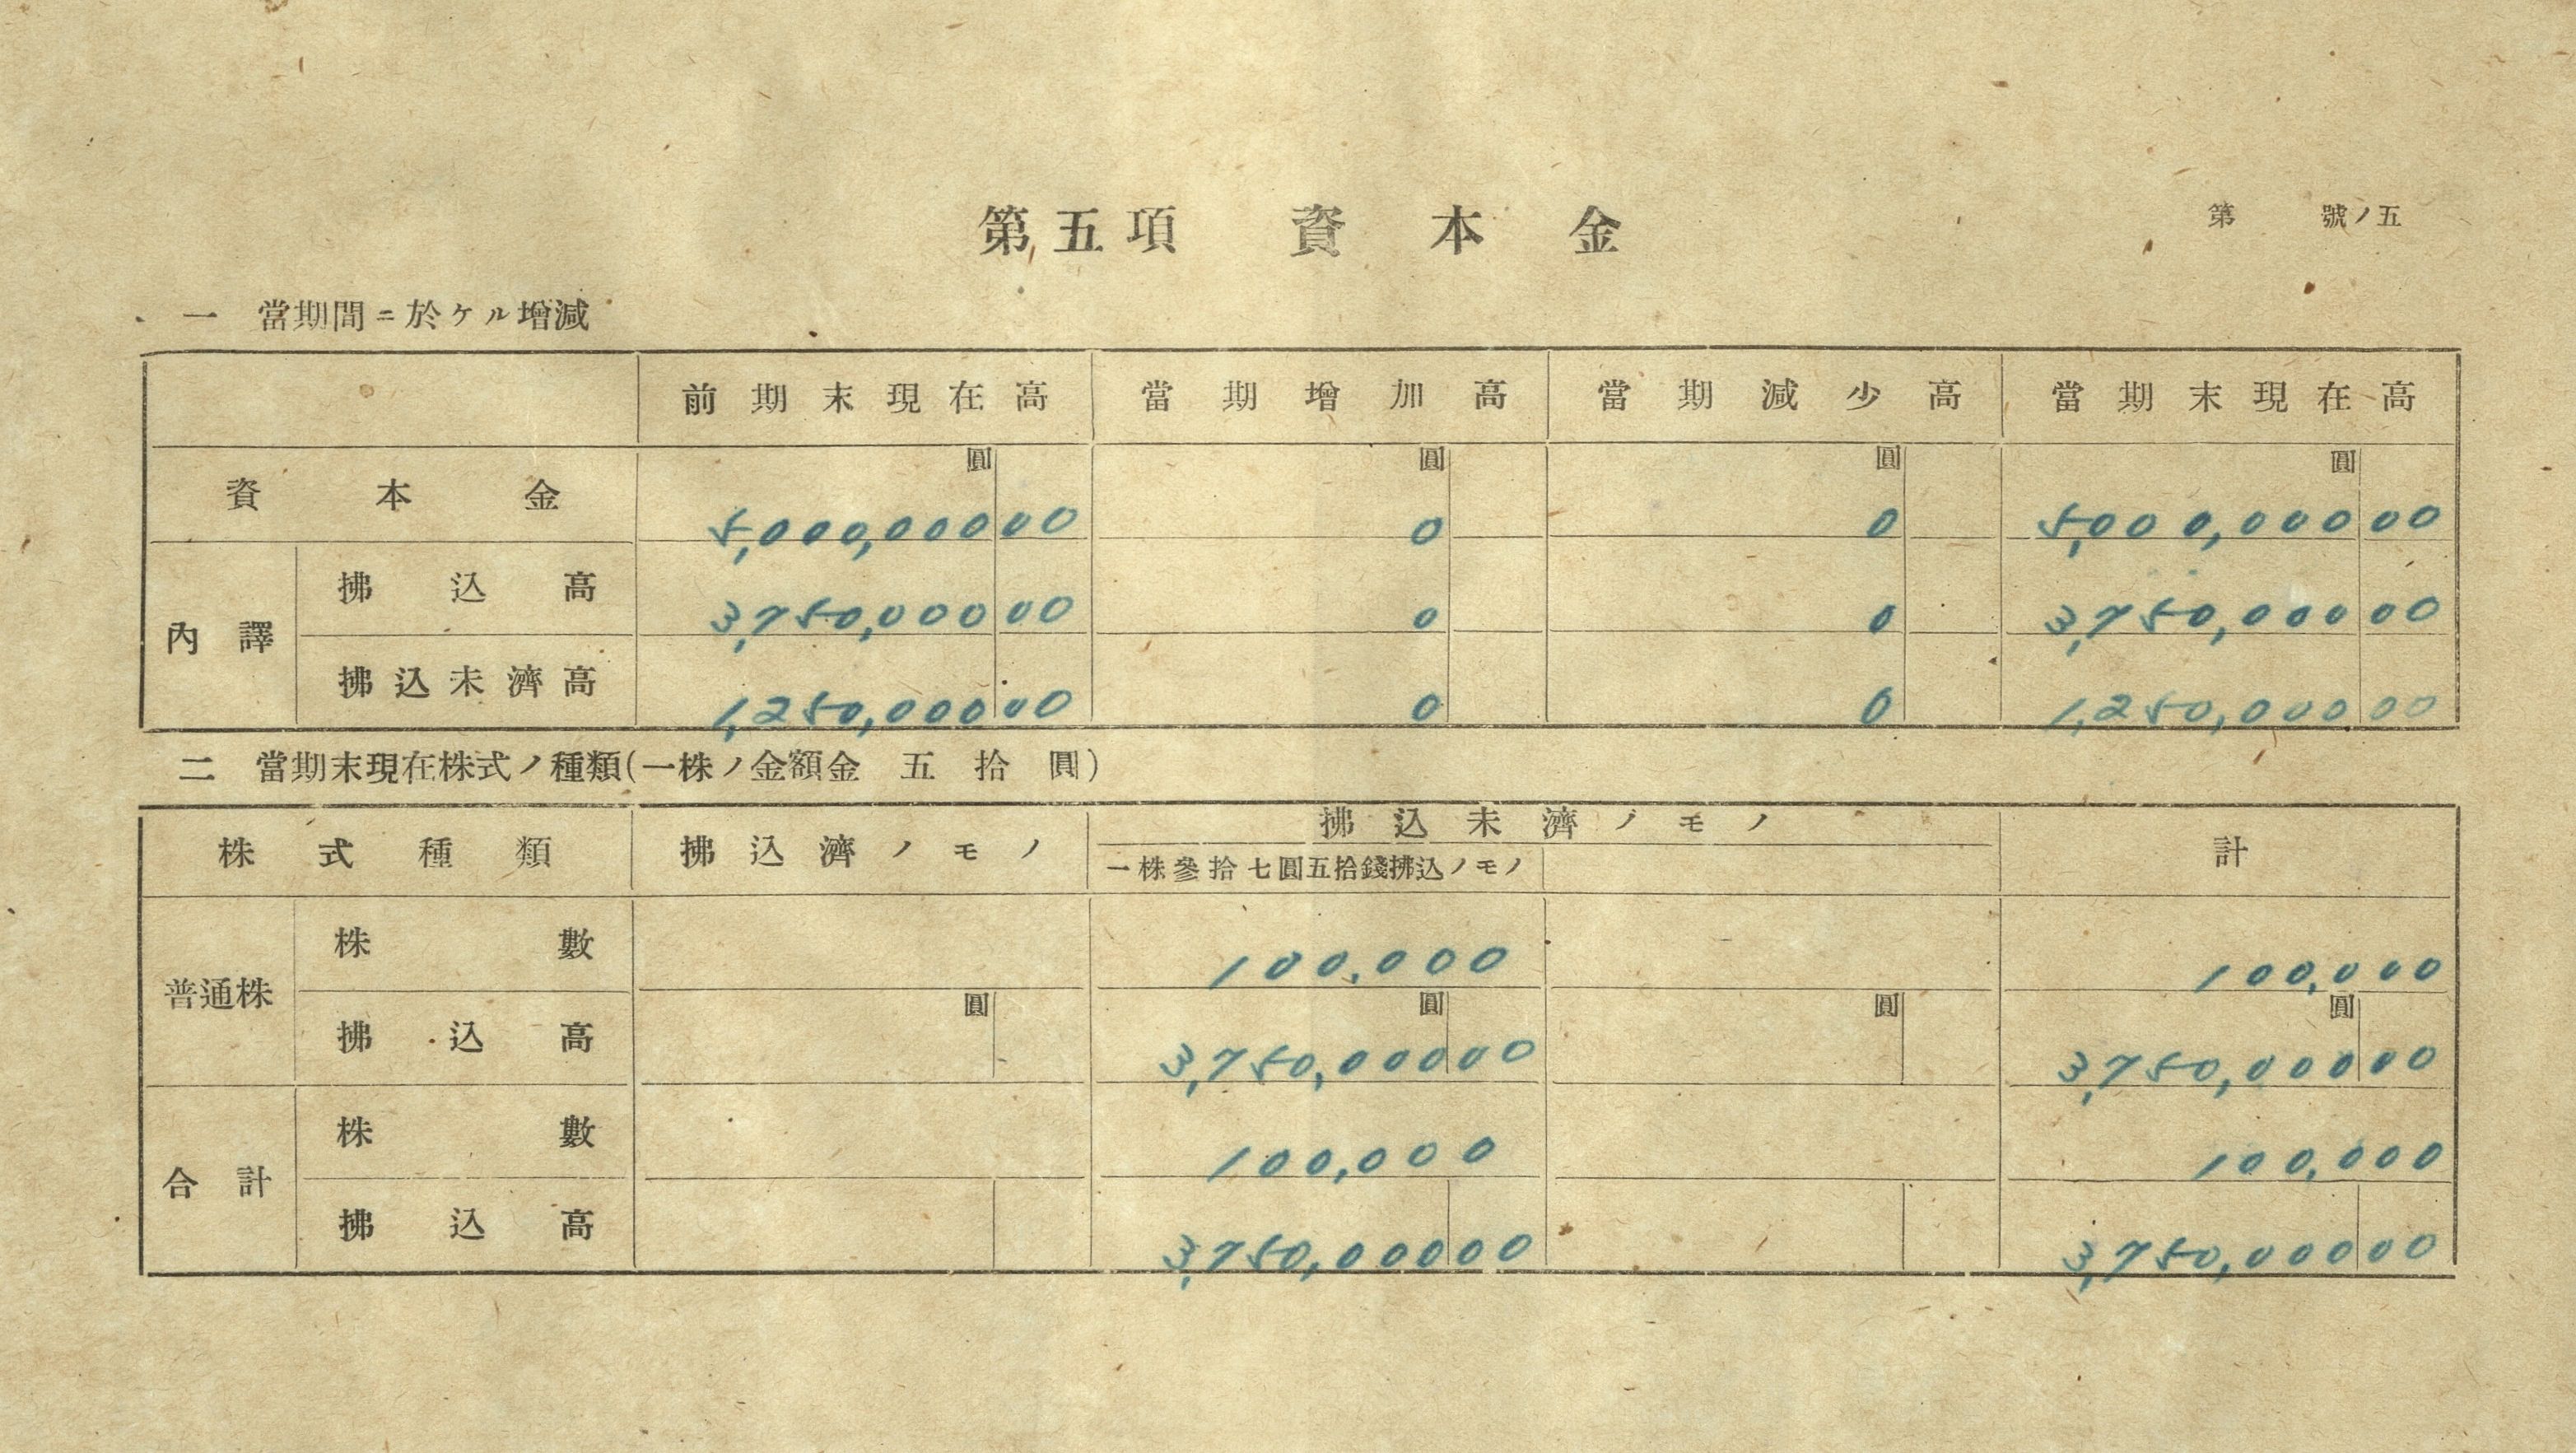 第五項　資本金
第　號ノ五
一　當期間ニ於ケル增減
前期末現在高　當期增加高　當期減少高　當期末現在高
圓　圓　圓　圓
資本金　5,000,000 00　0　0　5,000,000 00
內譯
拂込高　3,750,000 00　0　0　3,750,000 00
拂込未濟高　1,250,000 00　0　0　1,250,000 00
二　當期末現在株式ノ種類(一株ノ金額金　五拾圓)
株式種類　拂込濟ノモノ　拂込未濟ノモノ　計
一株參拾七圓五拾錢拂込ノモノ
普通株
株數　100,000　100,000
圓　圓　圓　圓
拂込高　3,750,000 00　3,750,000 00
合計
株數　100,000　100,000
拂込高　3,750,000 00　3,750,000 00